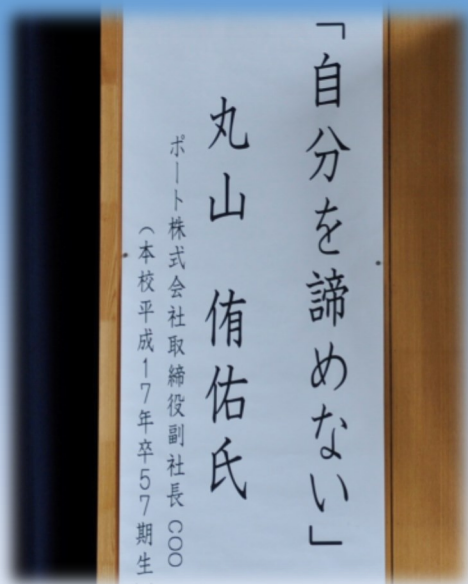 「自分を諦めない」
丸山 侑佑氏
ポート株式会社取締役副社長 COO
（本校平成17年卒57期生